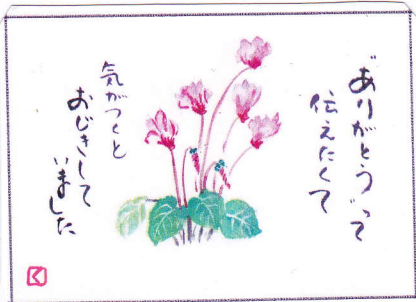 “ありがとう”って
伝えたくて
気がつくと
おじぎして
いました
く